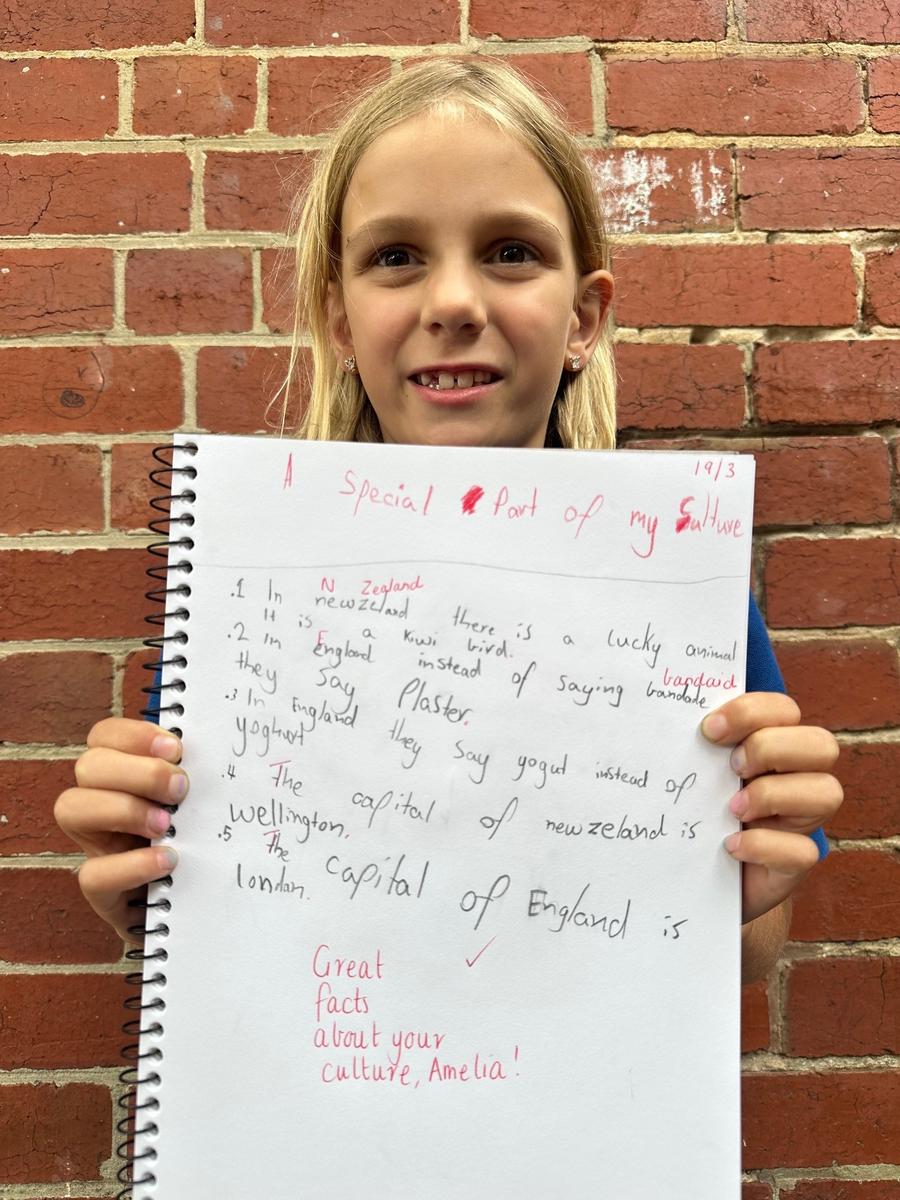 19/3
A Special Part of my Culture
N Zegland
.1 In newzeland there is a lucky animal
It is a kiwi bird.
bandaid
.2 In England instead of saying bandade
they say Plaster.
.3 In England they say yogut instead of
yoghurt
.4 The capital of newzeland is
wellington.
.5 The capital of England is
london.
Great
facts
about your
culture, Amelia!